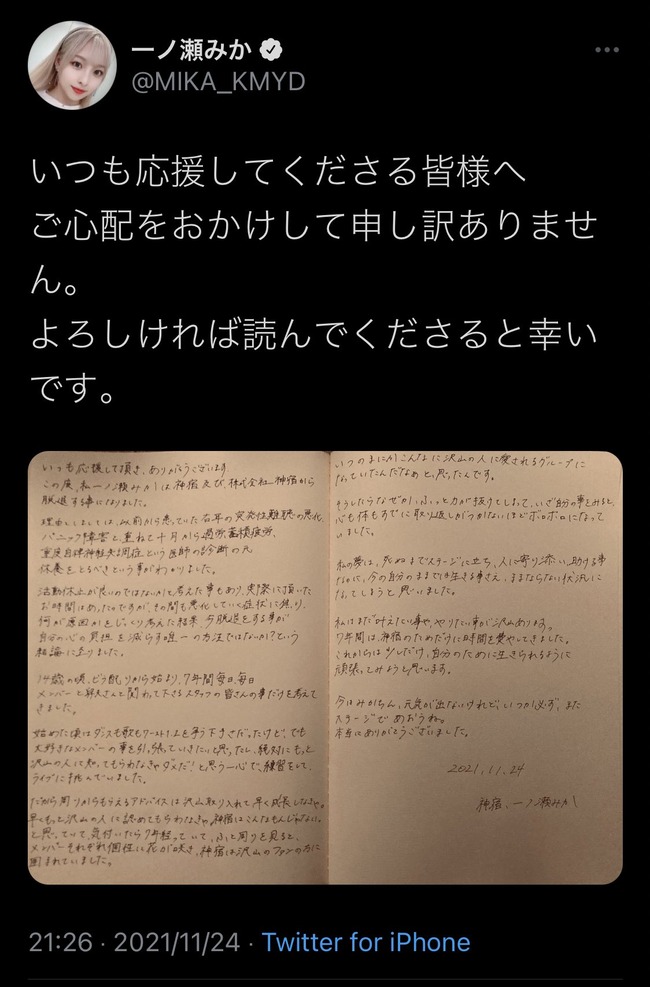 一ノ瀬みか
@MIKA_KMYD
いつも応援してくださる皆様へ
ご心配をおかけして申し訳ありませ
ん。
よろしければ読んでくださると幸い
です。
いつも応援して頂き、ありがとうございます
この度、私一ノ瀬みかは神宿及び、株式会社神宿から
脱退する事になりました。
理由としましては、以前から患っていた右耳の突発性難聴の悪化、
パニック障害と、重ねて十月から過労蓄積疲労、
重度自律神経失調症という医師の診断の元
休養をとるべきという事がわかりました。
活動休止が良いのではないかと考えた事もあり、実際に頂いた
お時間はあったのですが、その間も悪化していく症状に焦り、
何が原因かをじっくり考えた結果、今脱退をする事が
自分の心の負担を減らす唯一の方法ではないか?という
結論に至りました。
14歳の頃、ビラ配りから始まり、7年間毎日、毎日
メンバーと羽太さんと関わって下さるスタッフの皆さんの事だけを考えて
きました。
始めた頃はダンスも歌もワースト1.2を争う下手さだったけど、でも
大好きなメンバーの事を引っ張っていきたいと思ったし、絶対にもっと
沢山の人に知ってもらわなきゃダメだ!と思う一心で、練習をして、
ライブに挑んでいました。
だから周りからもらえるアドバイスは沢山取り入れて早く成長しなきゃ。
早くもっと沢山の人に認めてもらわなきゃ。神宿はこんなもんじゃない。
と思っていて、気付いたら7年経っていて、ふと周りを見ると、
メンバーそれぞれ個性に花が咲き、神宿は沢山のファンの方に
囲まれていました。
いつのまにかこんなに沢山の人に愛されるグループに
なっていたんだなあと、思ったんです。
そうしたらなぜか、ふっと力が抜けてしまって、いざ自分の事をみると、
心も体もすでに取り返しがつかないほどボロボロになって
いました。
私の夢は、死ぬまでステージに立ち、人に寄り添い、助ける事
なのに、今の自分のままでは生きる事さえ、ままならない状況に
なってしまうと思いました。
私はまだ叶えたい事や、やりたい事が沢山あります。
7年間は、神宿のためだけに時間を費やしてきました。
これからは少しだけ、自分のために生きられるように
頑張ってみようと思います。
今はみかちん、元気が出ないけれど、いつか必ず、また
ステージで めおうね。
本当にありがとうございました。
2021.11.24
神宿、一ノ瀬みか
21:26 · 2021/11/24 · Twitter for iPhone